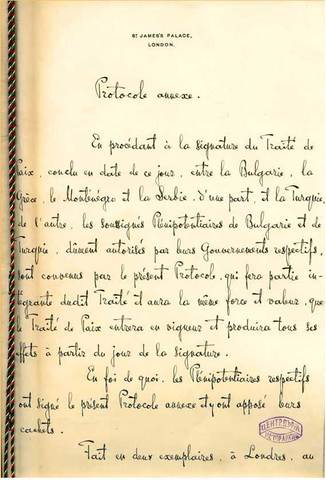 ST JAMES'S PALACE,
LONDON.
Protocole annexe.
En procédant à la signature du Traité de
Paix, conclu en date de ce jour, entre la Bulgarie, la
Grèce, le Monténégro et la Serbie, d'une part, et la Turquie,
de l'autre, les soussignés Plénipotentiaires de Bulgarie et de
Turquie, dûment autorisés par leurs Gouvernements respectifs,
sont convenus par le présent Protocole, qui fera partie in-
tégrante dudit Traité et aura la même force et valeur, que
le Traité de Paix entrera en vigueur et produira tous ses
effets à partir du jour de la signature.
En foi de quoi, les Plénipotentiaires respectifs
ont signé le présent Protocole annexe et y ont apposé leurs
cachets.
Fait en deux exemplaires, à Londres, au